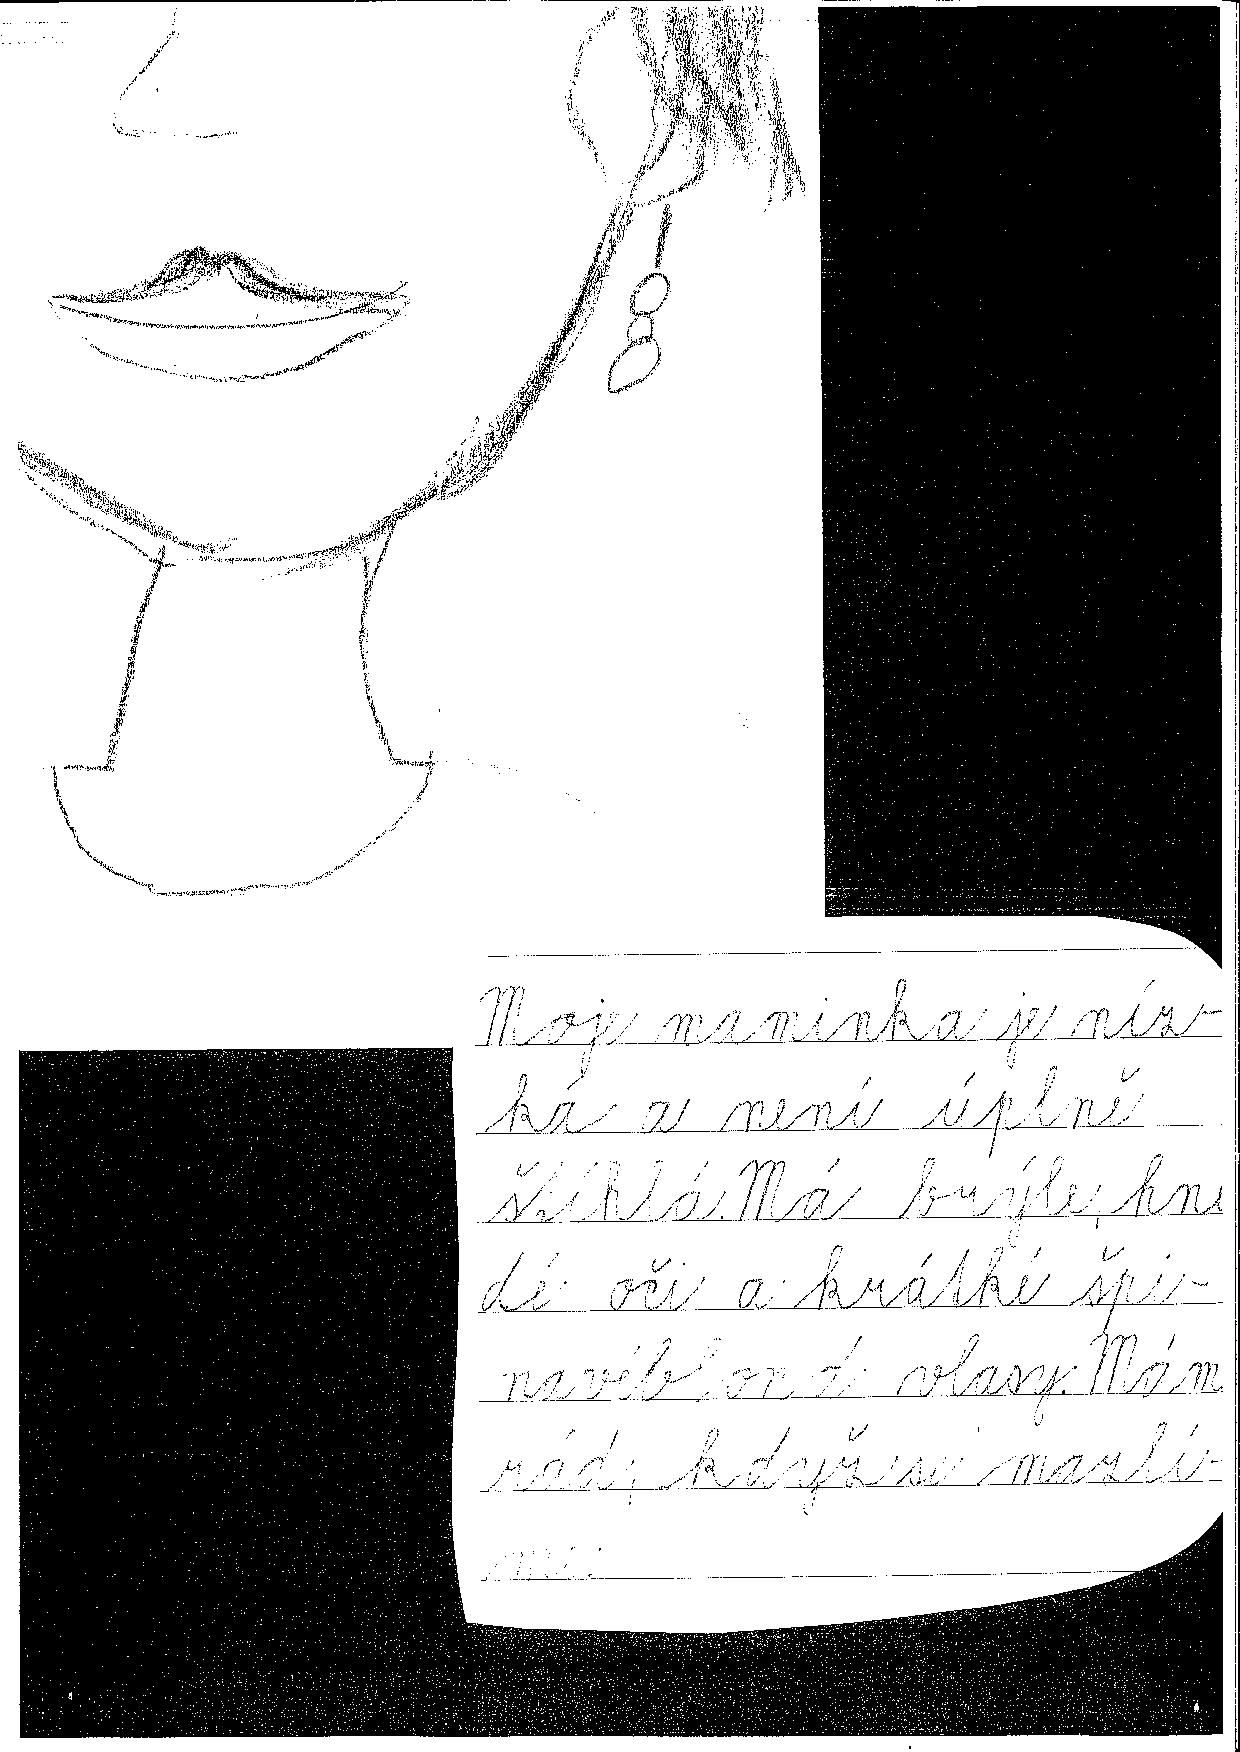 Moje maminka je níz-
ká a není úplně
štíhlá. Má brýle, hně
dé oči a krátké špi-
navéblond vlasy. Mám
rád, když se mazlí-
me.